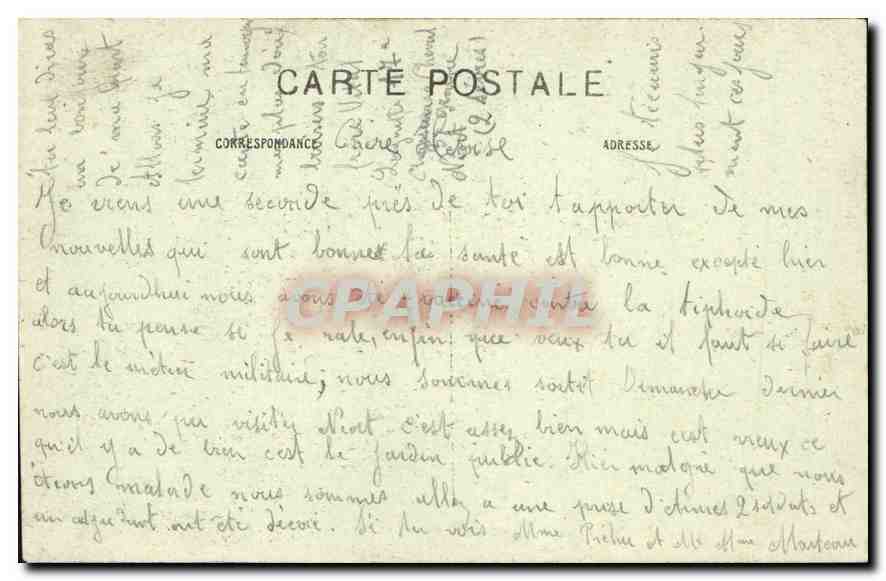 CARTE POSTALE
CORRESPONDANCE
ADRESSE
Chère
Je viens une seconde près de toi t'apporter de mes
nouvelles qui sont bonnes la santé est bonne excepté hier
et aujourdhui nous avons été vacciné contre la tiphoïde
alors tu pense si je rale, enfin que veux tu il faut si faire
c'est le métier militaire, nous sommes sortit Dimanche dernier
nous avons pu visiter Niort c'est assez bien mais c'est vieux ce
qu'il y a de bien c'est le Jardin public. Hier malgré que nous
étions malade nous sommes allez a une prise d'Armes 2 soldats et
un adjudant ont été décoré. Si tu vois Mme et Mr Mme Marteau
Tu leur diras
un bonjour
de ma part
Allons je
termine ma
carte en
baisers
Je t'écrirais
plus longue
ment ces jours
(2 Sèvres)
CPAPHIL